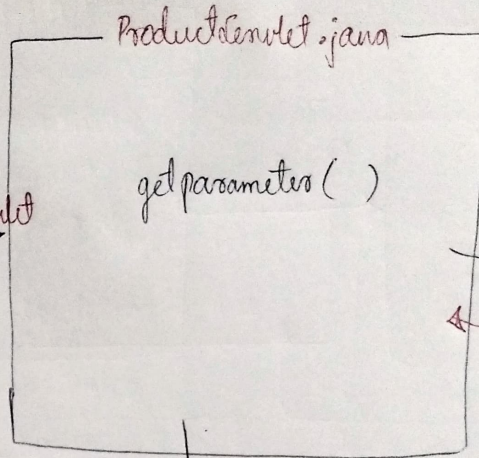 ProductServlet.java
getparameter( )